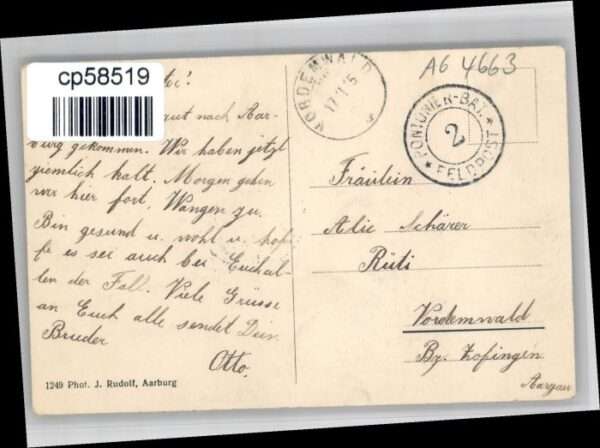 cp58519
gut nach Aar-
burg gekommen. Wir haben jetzt
ziemlich kalt. Morgen gehen
wir hier fort, Wangen zu.
Bin gesund u. wohl u. hof-
fe es sei auch bei Euch al-
len der Fall. Viele Grüsse
an Euch alle sendet Dein
Bruder
Otto.
1249 Phot. J. Rudolf, Aarburg
VORDEMWALD
A6 4663
PONTONIER-BAT.
2
FELDPOST
Fräulein
Alie Schärer
Rüti
Vordemwald
Bz. Zofingen
Aargau